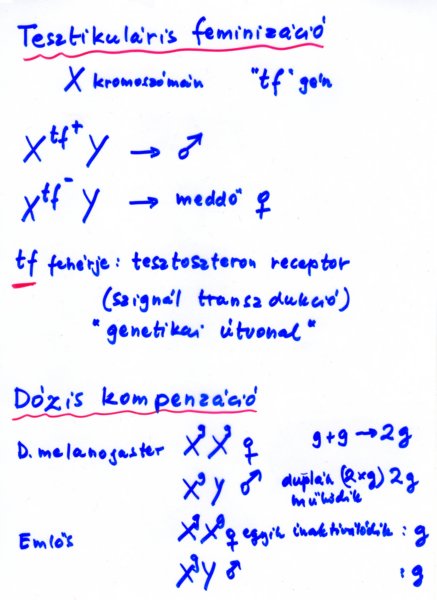 Tesztikuláris feminizáció
X kromoszómán "tf" gén
X^tf+ Y → ♂
X^tf- Y → meddő ♀
tf fehérje: tesztoszteron receptor
(szignál transzdukció)
"genetikai útvonal"
Dózis kompenzáció
D. melanogaster X^g X^g ♀ g+g → 2g
X^g Y ♂ duplán (2×g) 2g
működik
Emlős X^g X^g ♀ egyik inaktiválódik : g
X^g Y ♂ : g